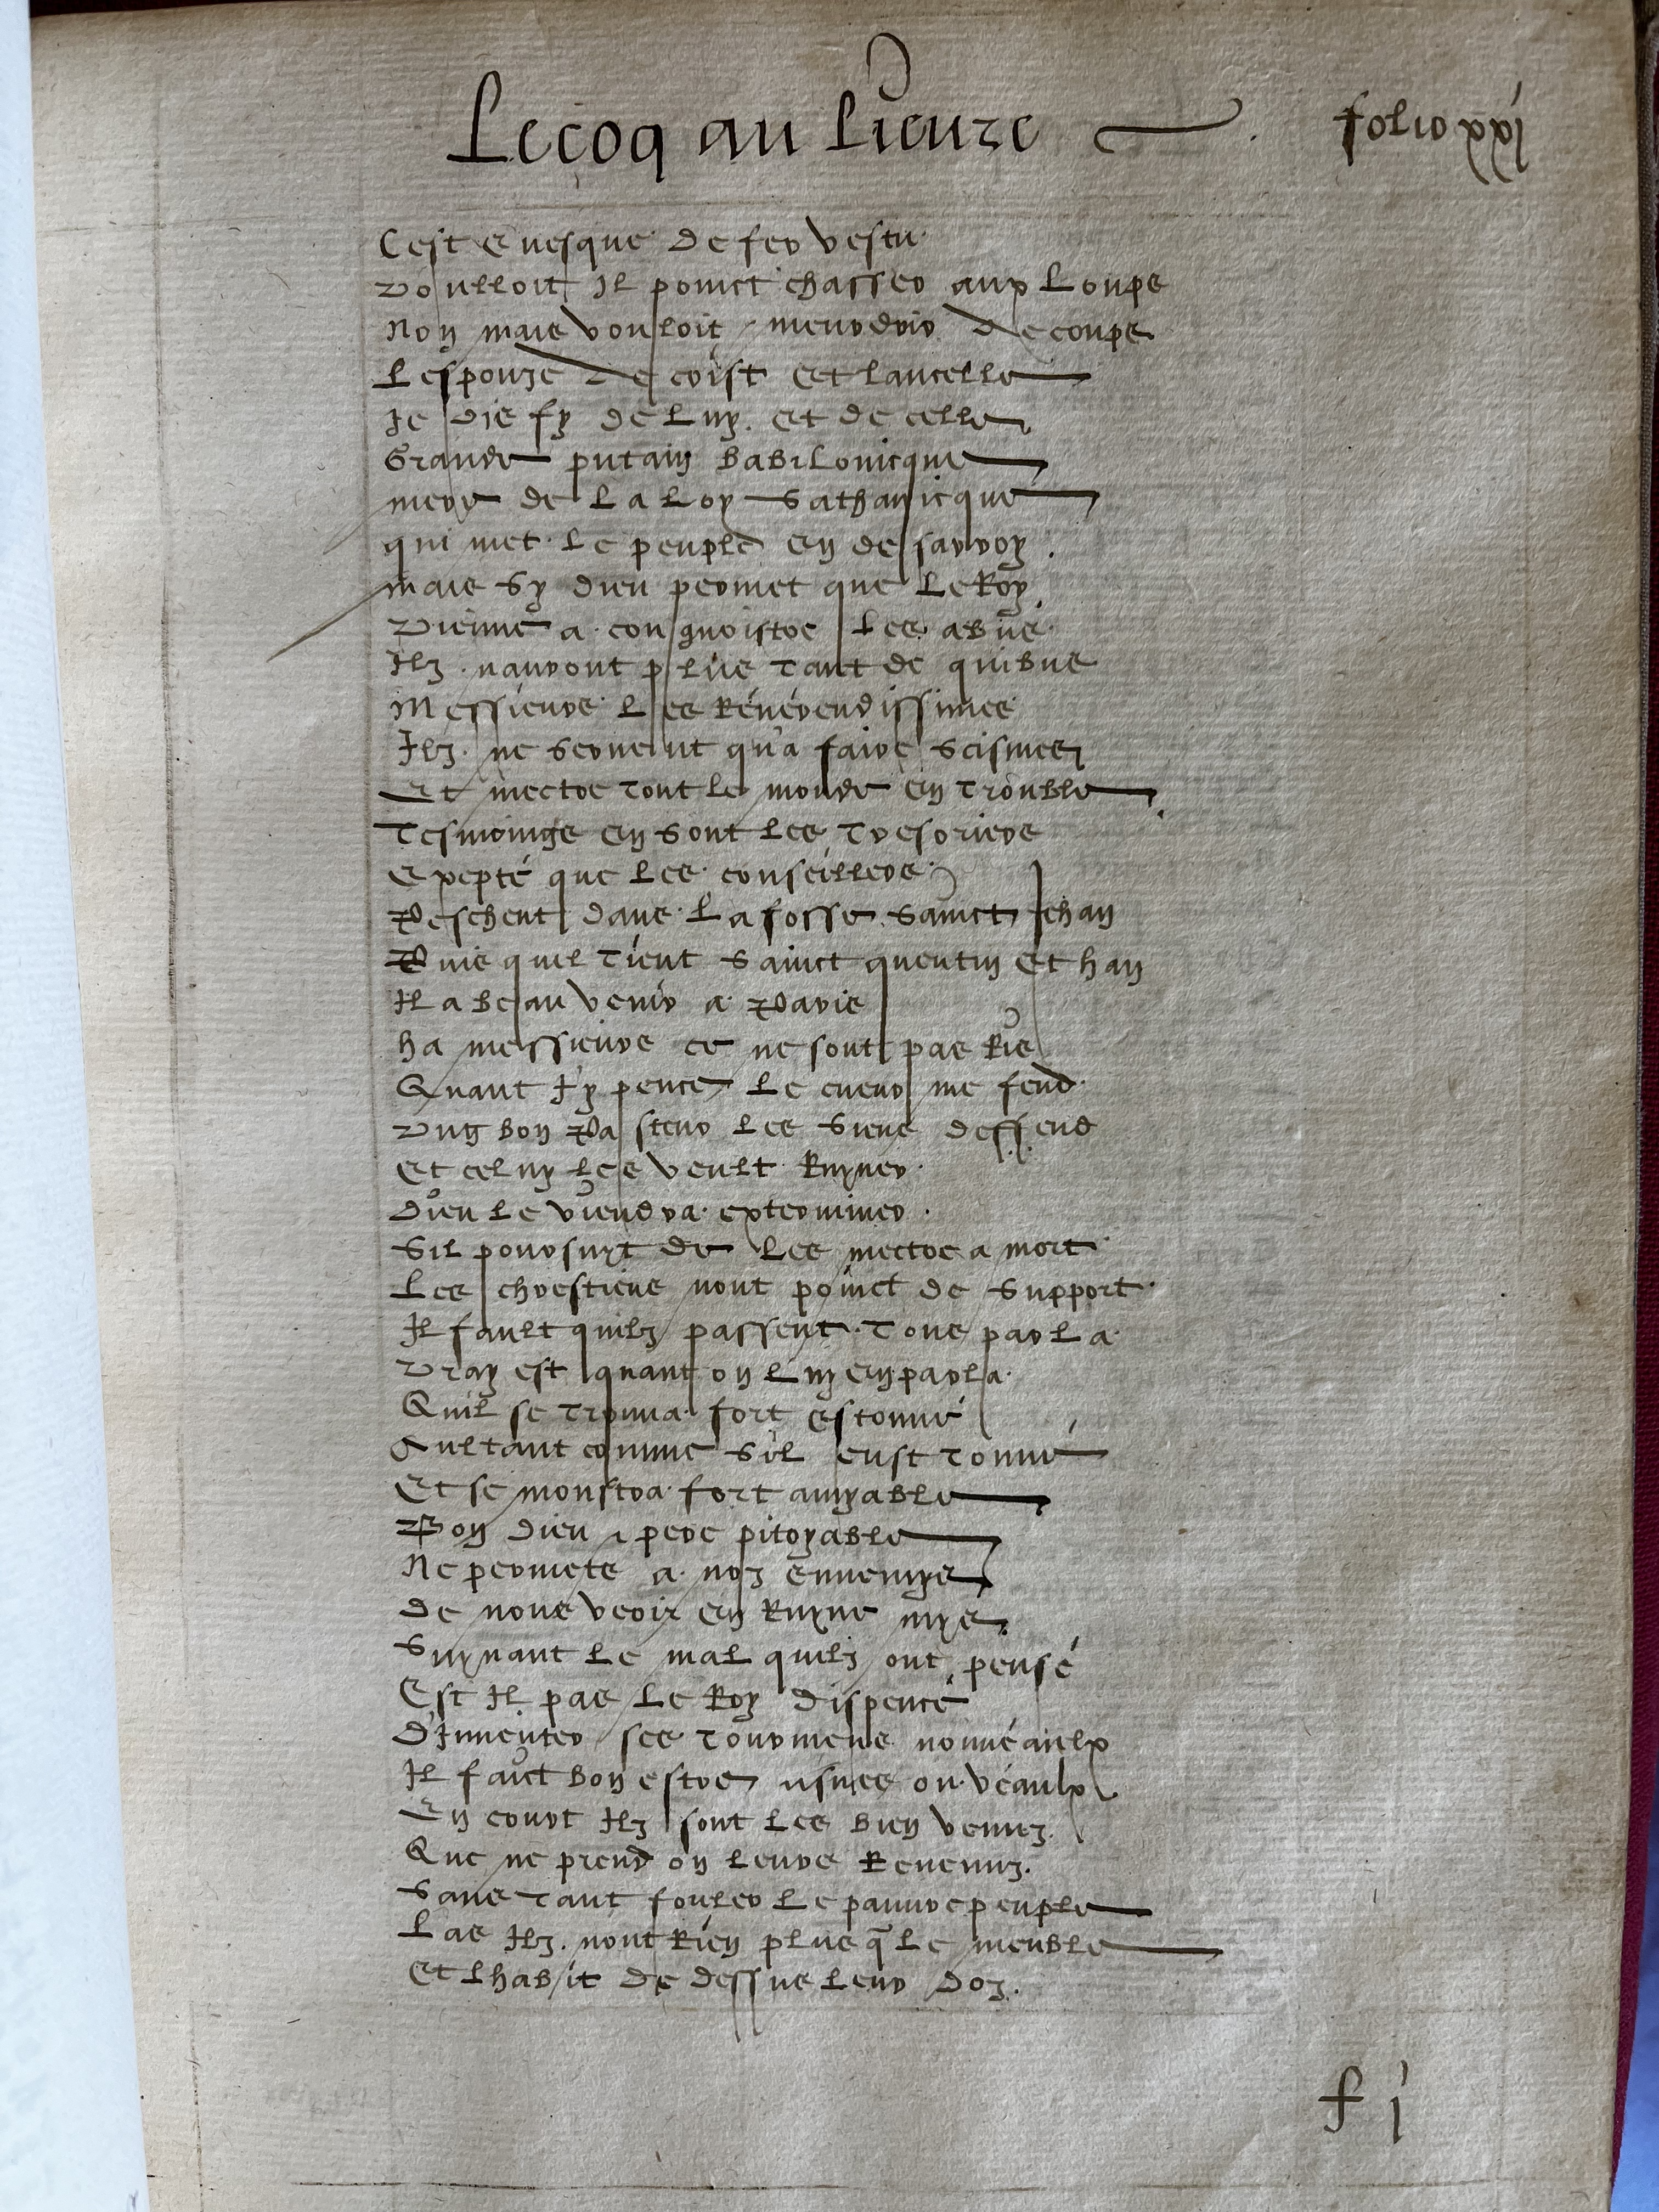 Le coq au Lieure
folio xxj
Cest euesque de fer vestu
Voulloit Il poinct chasser aux Loups
Non mais vouloit meurdrir de coups
Lespouze de crist et lancelle
Je dis fy de Luy. et de celle
Grande putain Babilonicque
mere de La Loy Sathanicque
qui met Le peuple en desarroy.
mais Sy dieu permet que Le Roy
Vienne a congnoistre Les abus
Ilz nauront plus tant de quibus
Messieurs Les Reuerendissimes
Ilz ne seruent qu'a faire Scismes
Et mectre tout Le monde en trouble
Tesmoings en sont Les Tresoriers
Expepté que Les conseillers
Peschent dans La fosse Sainct Jehan
Puis quil Tient Sainct quentin et han
Il a beau venir a Paris
ha messieurs ce ne sont pas Ris
Quant J'y pence Le cueur me fend
Vng bon Pasteur Les Siens deffend
Et celuy Les veult Ruyner
Dieu Le viendra exterminer.
Sil poursuyt de Les mectre a mort
Les chrestiens nont poinct de Support
Il fault quilz passent Tous par La
Vray est quant on Luy en parla
Quil se Trouua fort estonné
Aultant comme Sil eust Tonné
Et se monstra fort amyable
Bon dieu pere pitoyable
Ne permets a noz ennemys
De nous veoir en Ruyne mys
Suyuant Le mal quilz ont pensé
Est Il pas Le Roy dispencé
D'Inuenter ses Tourmens nouueaulx
Il faict bon estre asnes ou veaulx
En court Ilz sont Les bien venuz
Que ne prend on Leurs Reuenuz.
Sans Tant fouler Le pauure peuple
Las Ilz. nont Rien plus q̃ Le meuble
Et Lhabit de dessus Leur doz.
f j